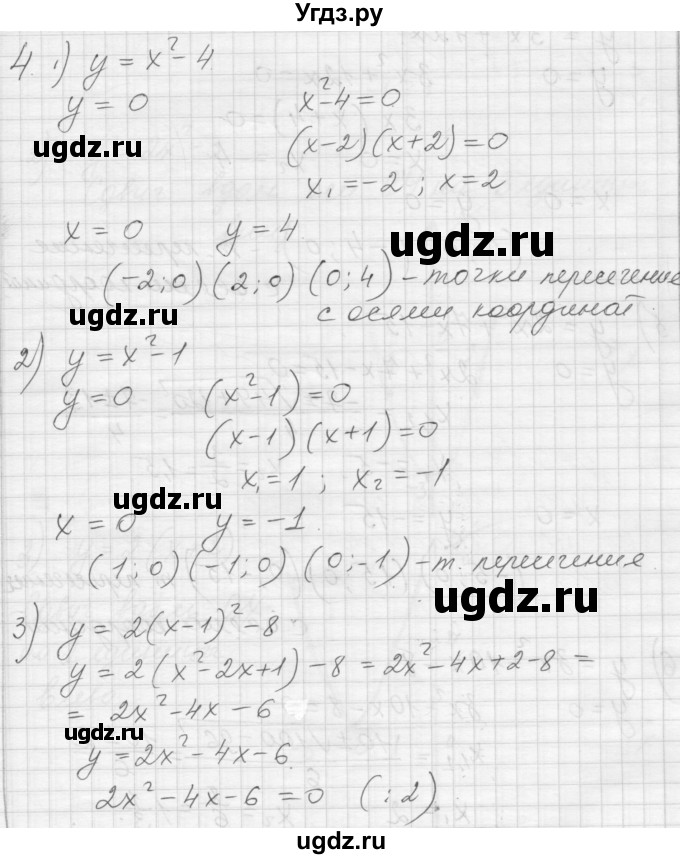 Угдз.ру
4. 1) y = x² - 4
y = 0 x² - 4 = 0
ugdz.ru (x-2)(x+2) = 0
x₁ = -2 ; x = 2
x = 0 y = 4 ugdz.ru
(-2; 0) (2; 0) (0; 4) - точки пересечение
ugdz.ru с осями координат.
2) y = x² - 1
y = 0 (x² - 1) = 0
(x-1)(x+1) = 0
x₁ = 1 ; x₂ = -1
ugdz.ru
x = 0 y = -1.
(1; 0) (-1; 0) (0; -1) - т. пересечения
ugdz.ru
3) y = 2(x-1)² - 8
y = 2(x² - 2x + 1) - 8 = 2x² - 4x + 2 - 8 =
= 2x² - 4x - 6
ugdz.ru
y = 2x² - 4x - 6.
2x² - 4x - 6 = 0 (: 2).
ugdz.ru
ugdz.ru